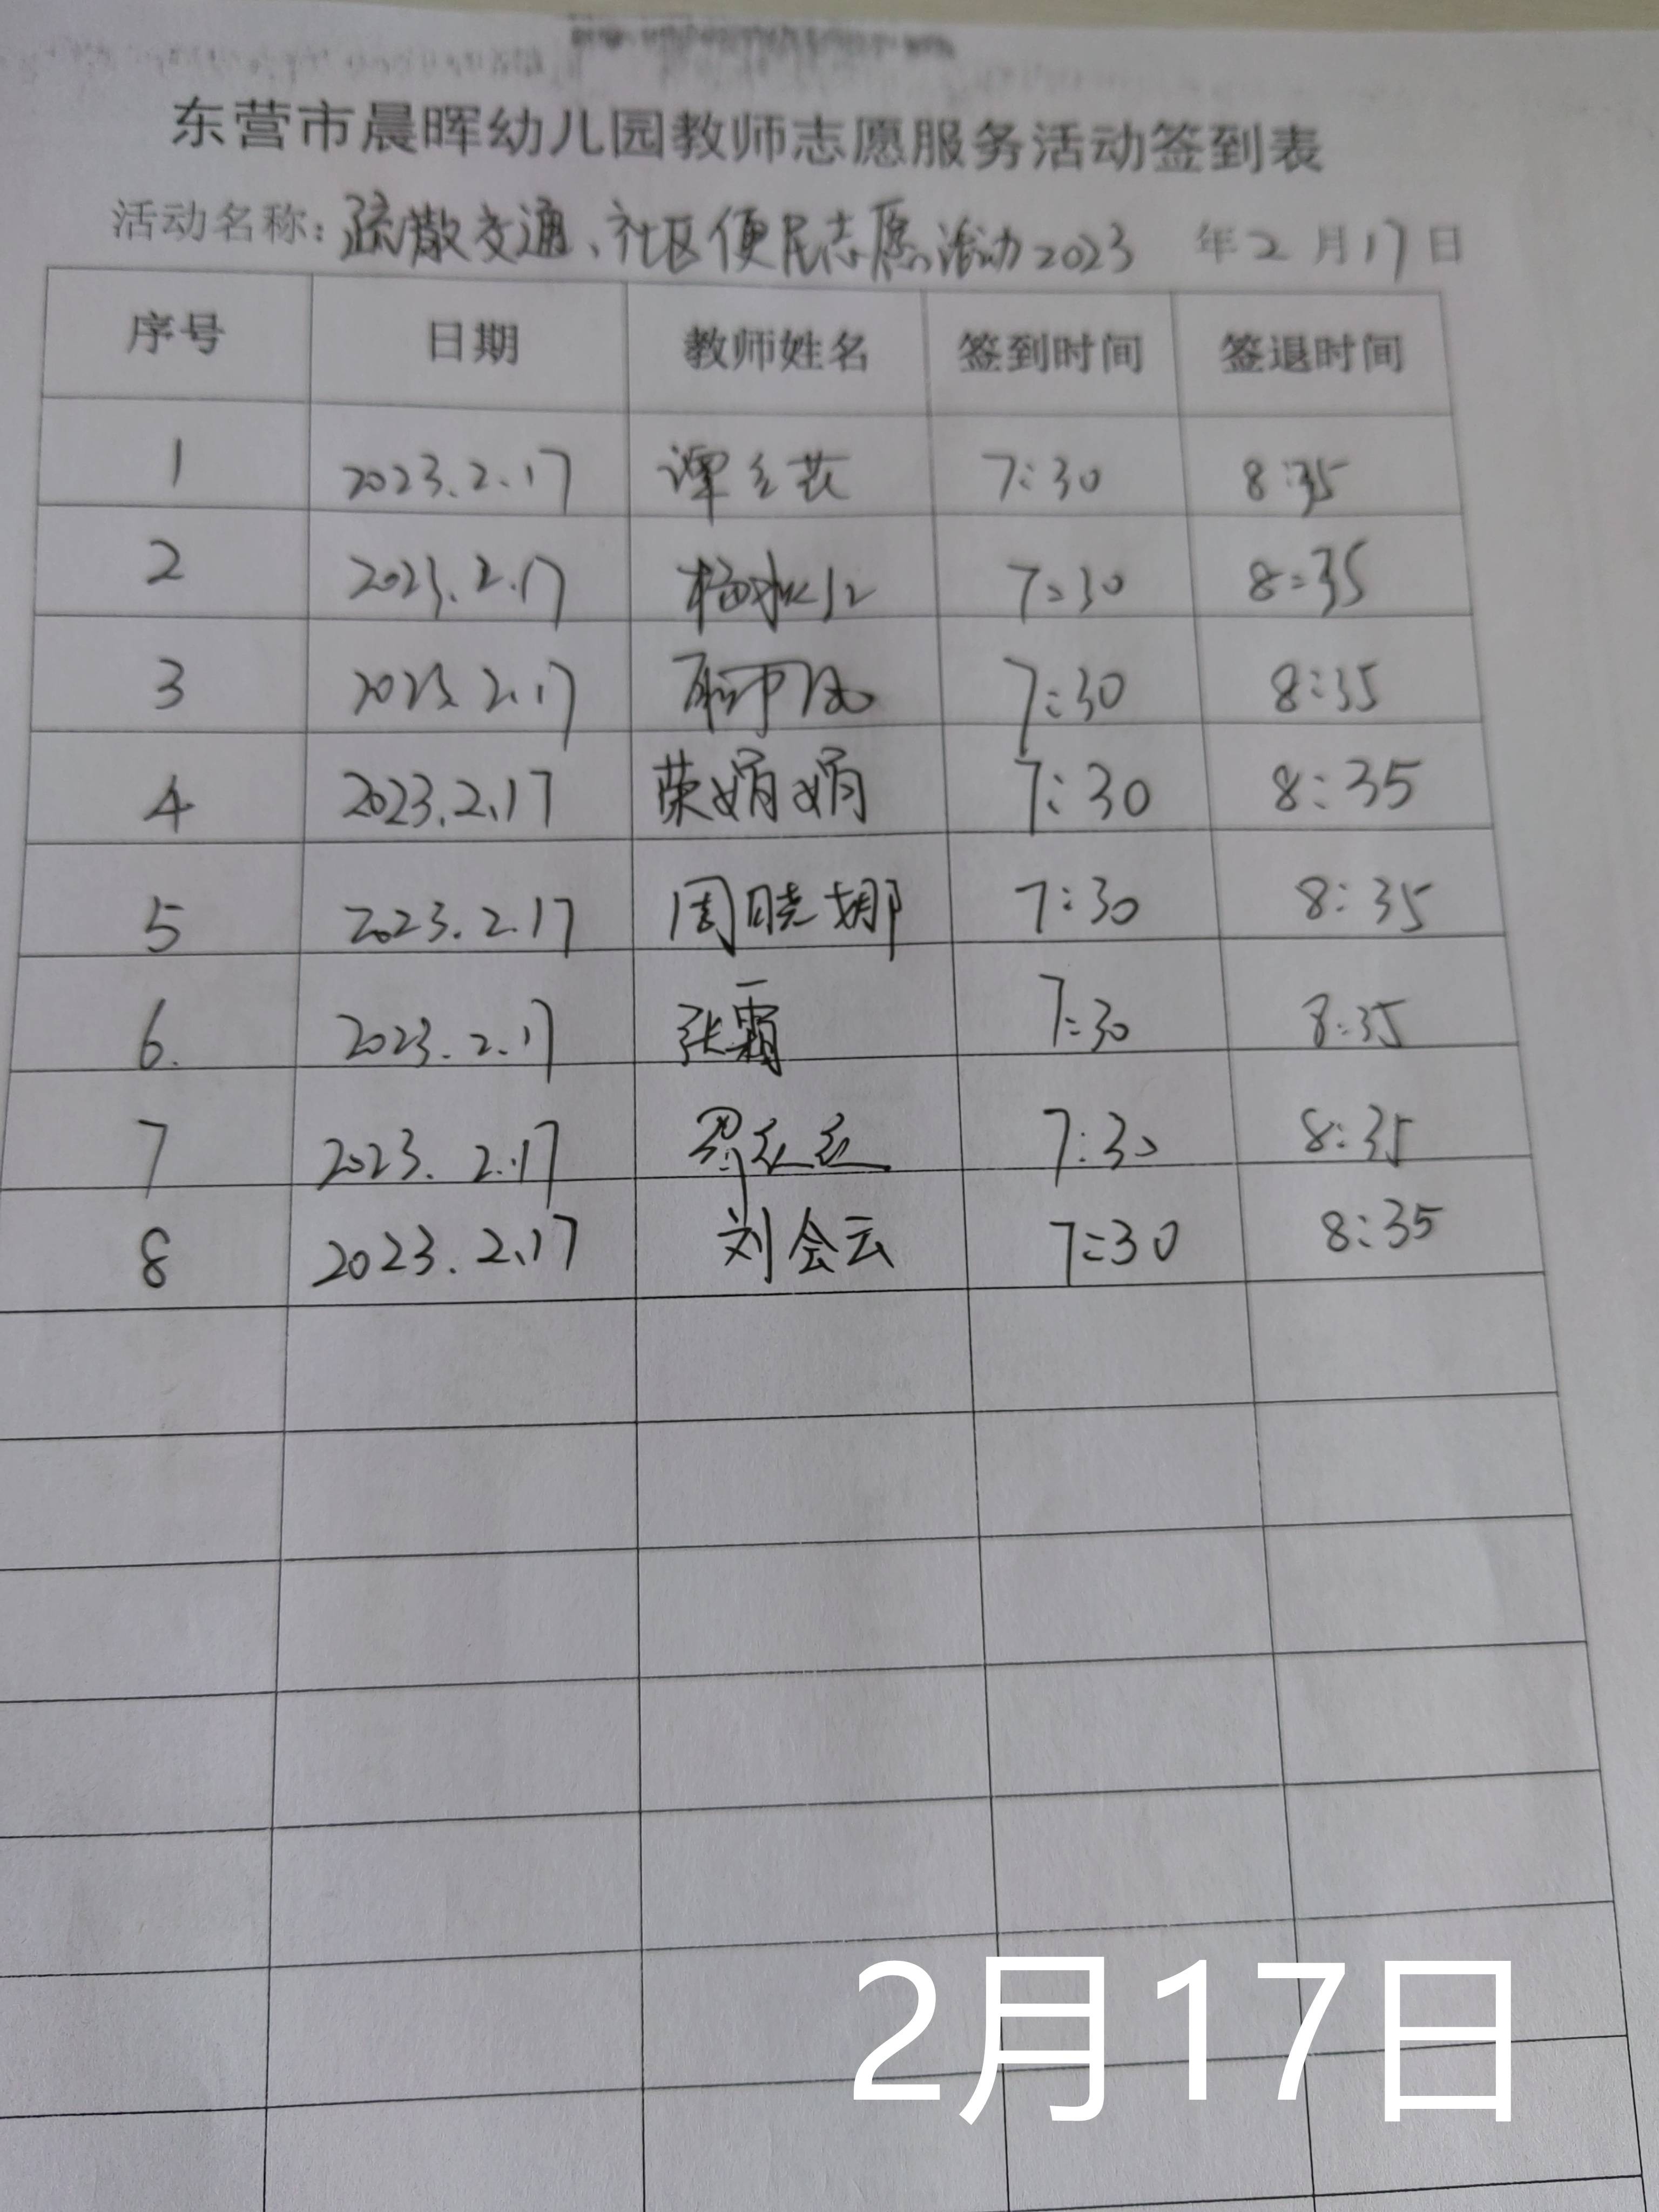 东营市晨晖幼儿园教师志愿服务活动签到表
活动名称：疏散交通、社区便民志愿活动2023 年2月17日
序号 日期 教师姓名 签到时间 签退时间
1 2023.2.17 7:30 8:35
2 2023.2.17 7:30 8:35
3 2023.2.17 7:30 8:35
4 2023.2.17 荣娟娟 7:30 8:35
5 2023.2.17 周晓娜 7:30 8:35
6. 2023.2.17 张霜 7:30 8:35
7 2023.2.17 7:30 8:35
8 2023.2.17 刘会云 7:30 8:35
2月17日